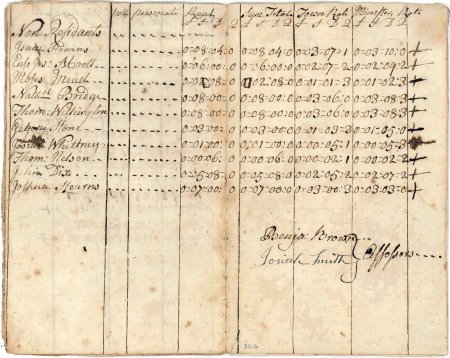 poll personal Real Sum Total Town Rate Minister Rate
Non Residents
Isaac Stearns 0:08:04:0 0:08:04:0 0:03:07:1 0:03:10:0
0:06:00:0 0:06:00:0 0:02:07:2 0:02:09:2
Moses Mead 0:02:08:0 0:01:01:3
Nathll Bridge 0:08:00:0 0:08:00:0 0:03:06:3 0:03:08:3
Thom: Willington 0:08:00:0 0:08:00:0 0:03:06:3 0:03:08:3
Gregory Stone 0:03:00:0 0:03:00:0 0:01:03:3 0:01:05:0
Whittney 0:01:00:0 0:01:00:0 0:00:05:1 0:00:05:3
Thom: Nelson 0:00:06:0 0:00:06:0 0:00:02:2 0:00:02:2
John Dix 0:05:08:0 0:05:08:0 0:02:05:3 0:02:07:2
Joshua Stearns 0:07:00:0 0:07:00:0 0:03:00:3 0:03:03:0
Benja: Brown
Josiah Smith
Assessors